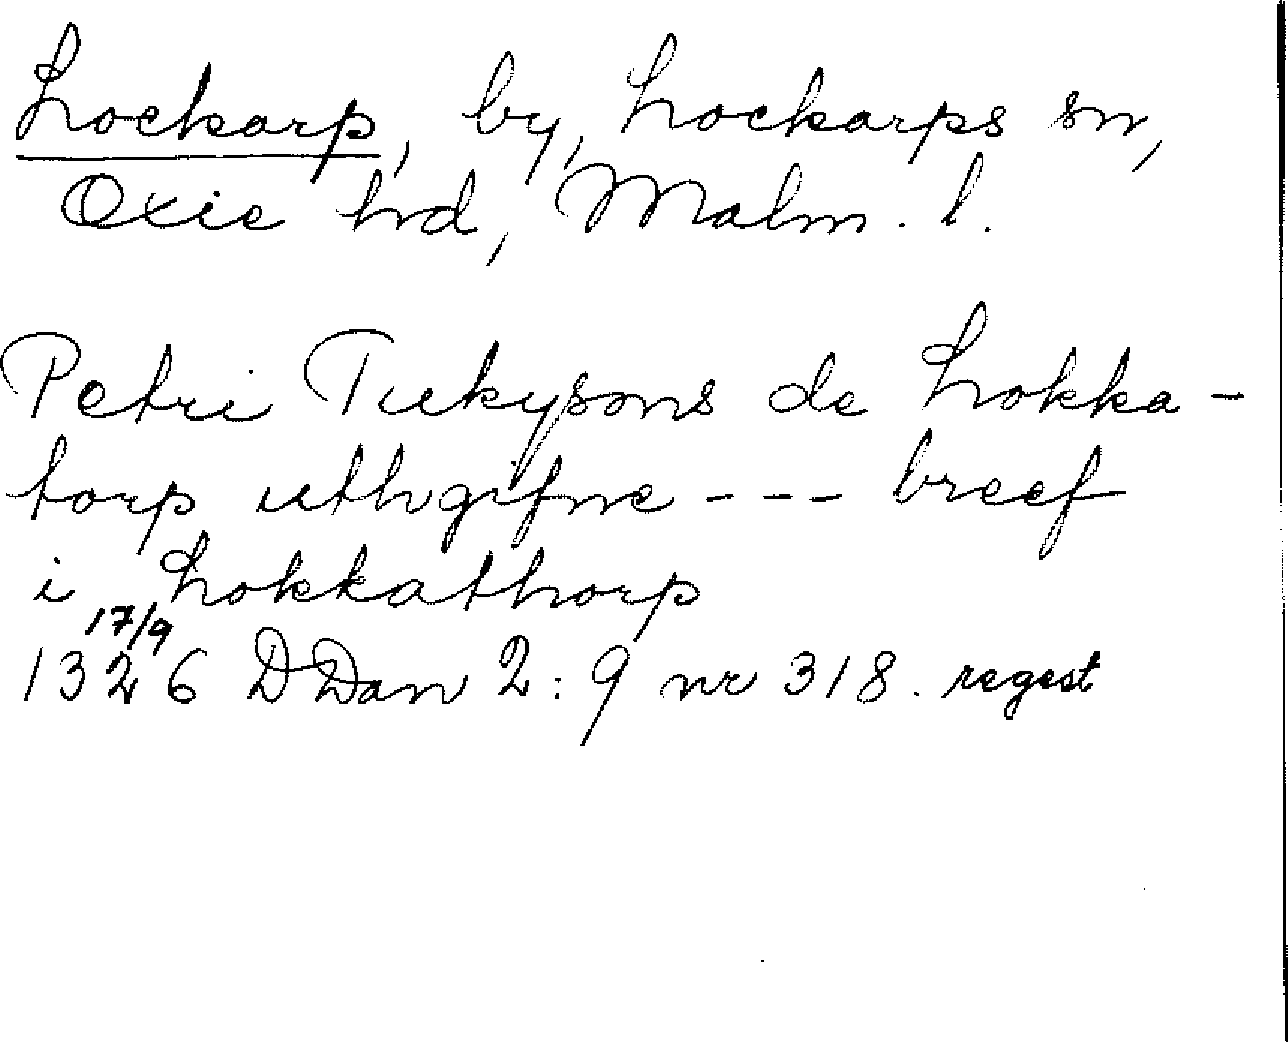 Lockarp, by, Lockarps sn,
Oxie hd, Malm. l.
Petri Tukysons de Lokka-
torp uthgifne --- breef
i Lokkathorp
17/9
1326 DDan 2:9 nr 318. regest